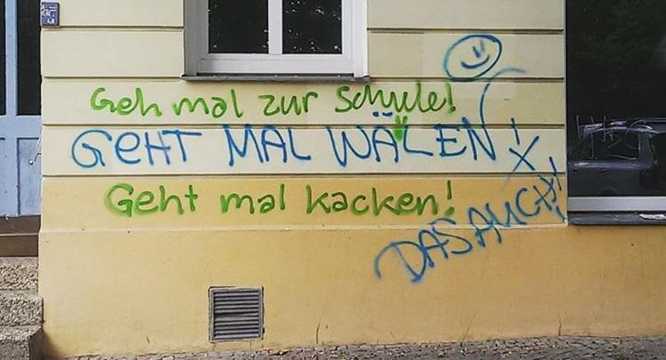 Geh mal zur Schule!
GEHT MAL WÄLEN!
Geht mal kacken!
DAS AUCH!